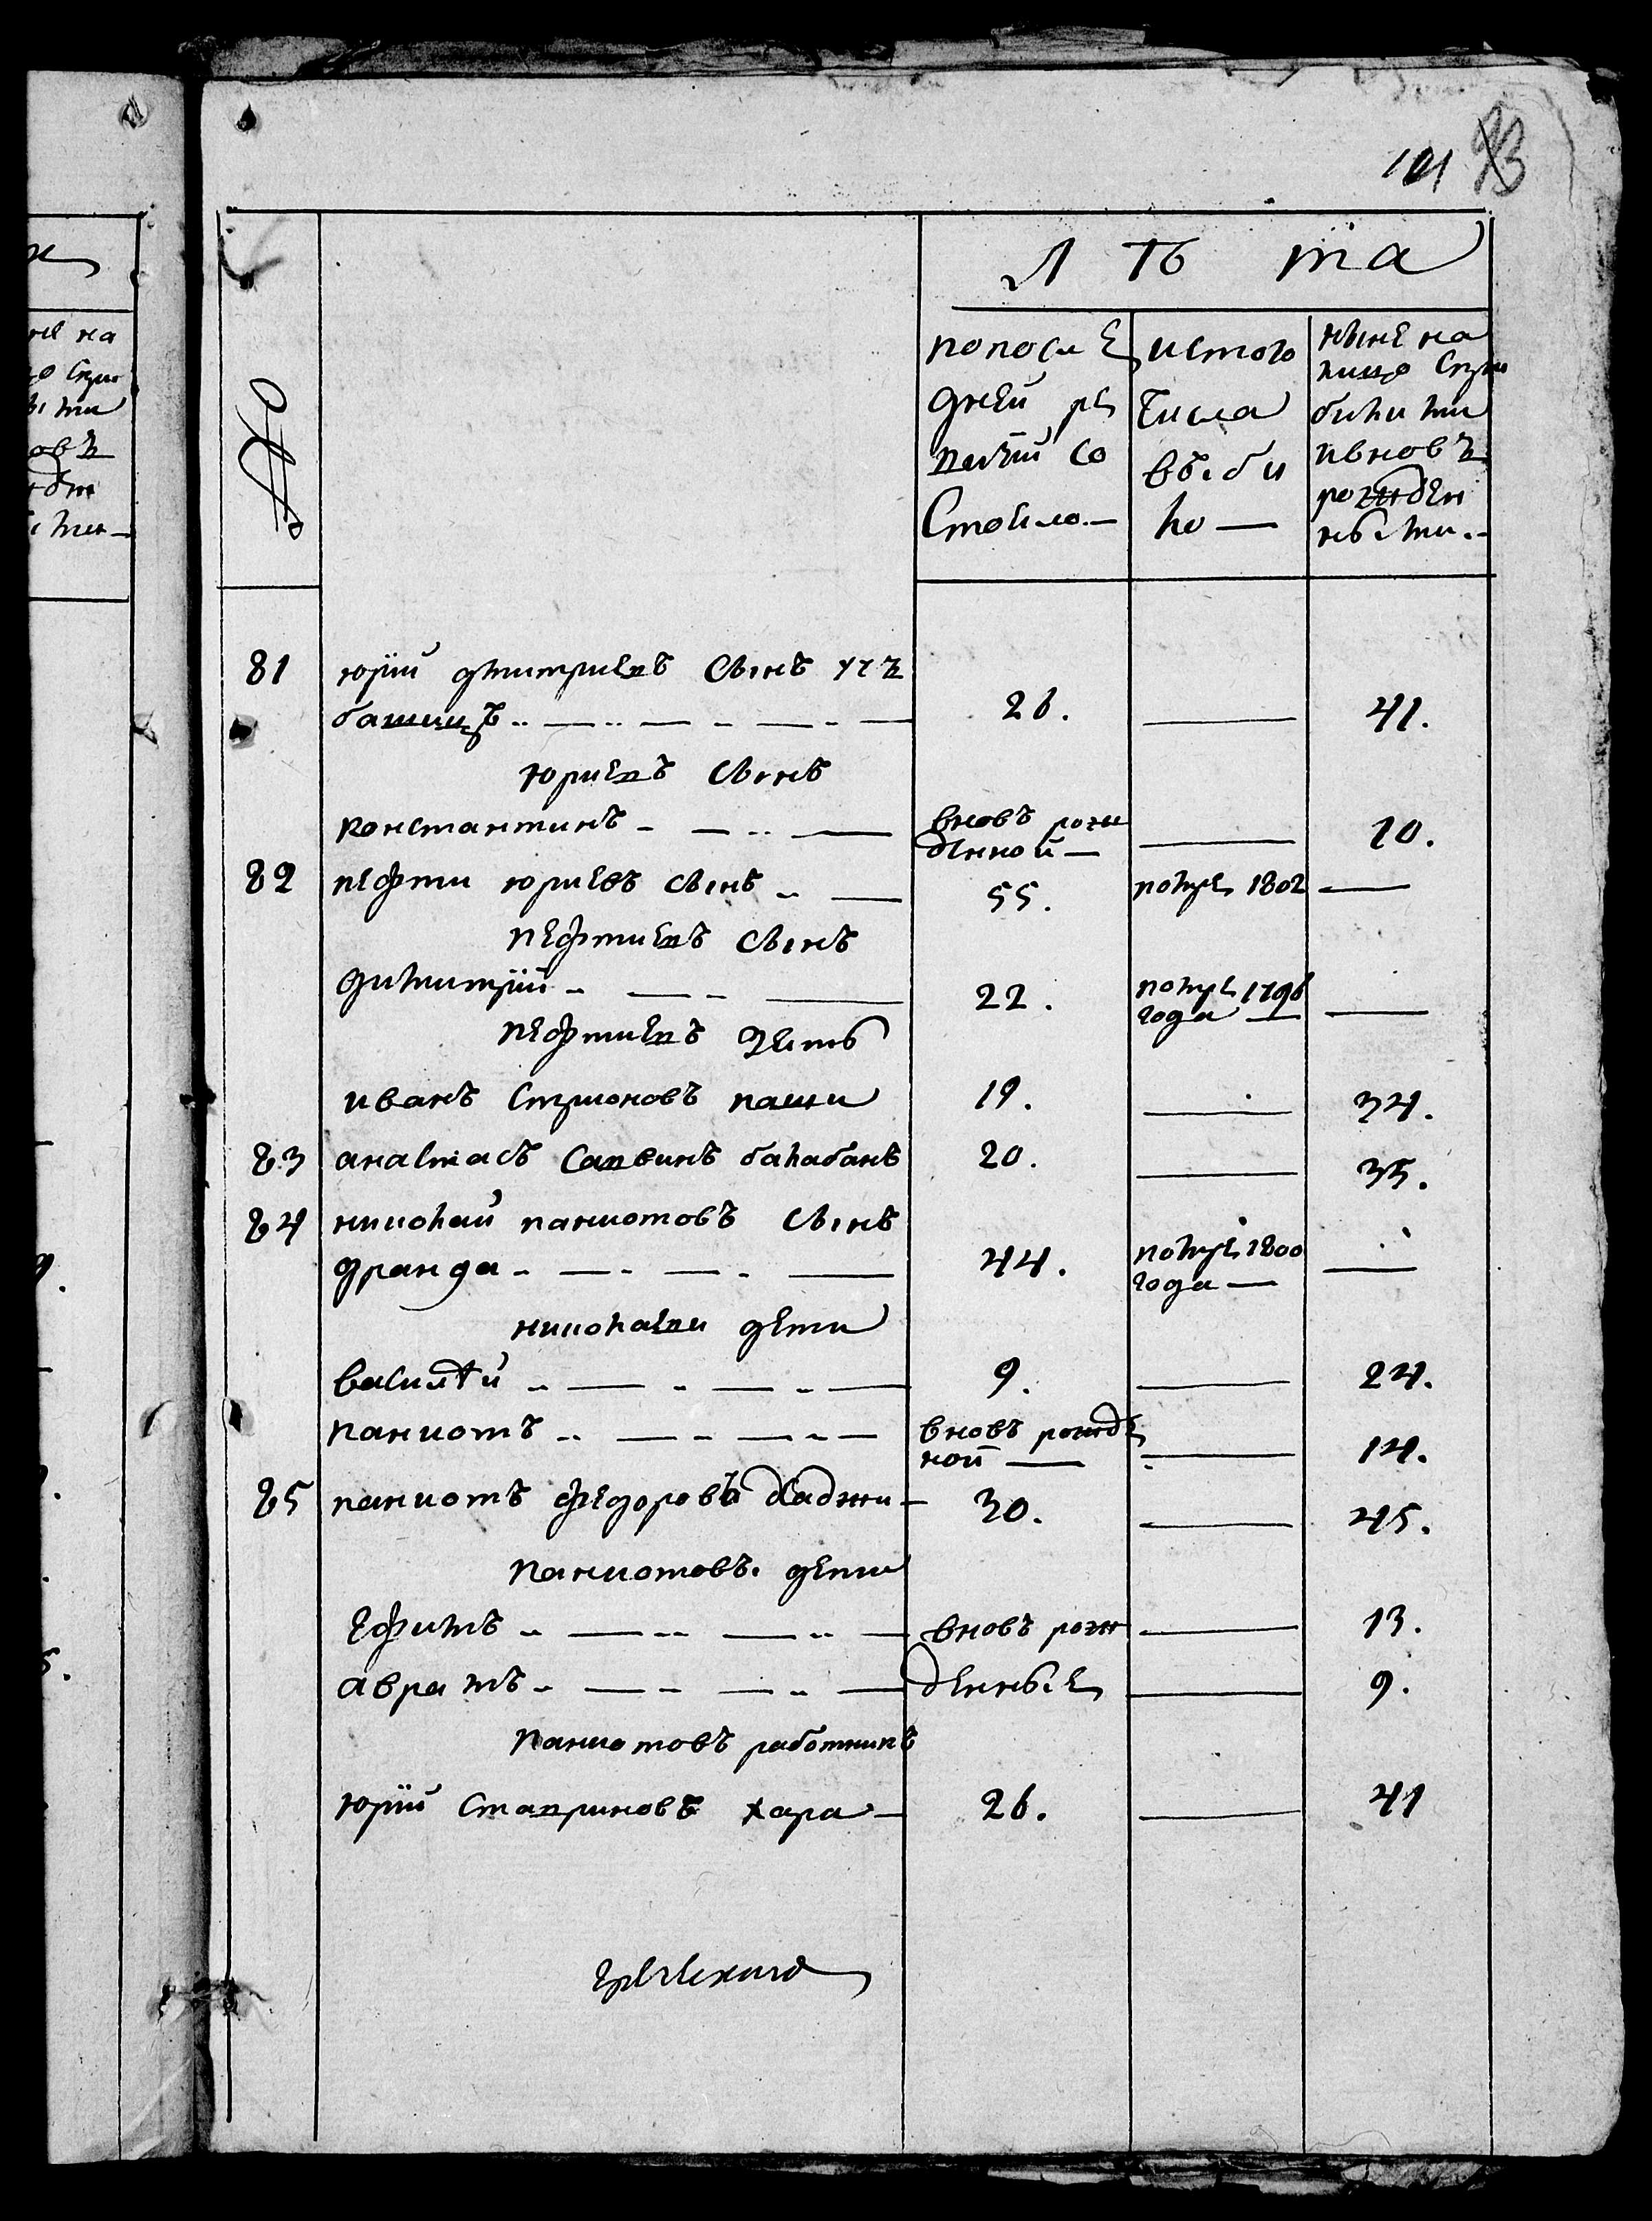 101 93
№
Лѣта
попослѣ
дней ре
визїи со
Стояло.—
истого
Числа
выбы
ло —
ныне на
лицо Спри
былыми
ивновъ
рожден
ными.-
81 юрїй дмитриевъ Сынъ
башинцъ 26. — 41.
юриевъ Сынъ
константинъ вновъ рож
денной — — 10.
82 кефти юриевъ Сынъ 55. помре 1802 —
кефтиевъ Сынъ
димитрїй 22. помре 1796
года — —
кефтиевъ зеть
иванъ Стрионовъ паши 19. — 34.
83 анастасъ Саввинъ балабанъ 20. — 35.
84 николай паниотовъ Сынъ
дранда 44. помре 1800
года — —
николаеви дети
василѣй 9. — 24.
паниотъ вновъ рожде
ной — — 14.
85 паниотъ федоровъ Хаджи 30. — 45.
паниотовъ дети
Ефимъ вновъ рож — 13.
аврамъ денные — 9.
паниотовъ работникъ
юрїй Ставриновъ хара 26. — 41